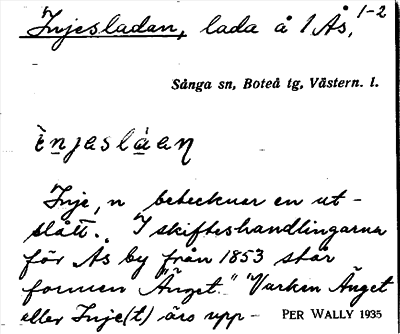 Injesladan, lada å 1 Ås, 1-2
Sånga sn, Boteå tg, Västern. l.
ènjaslàen
Inje, n betecknar en ut-
slått. I skifteshandlingarna
för Ås by från 1853 står
formen "Änget." "Varken Änget
eller Inje(t) äro upp-
PER WALLY 1935